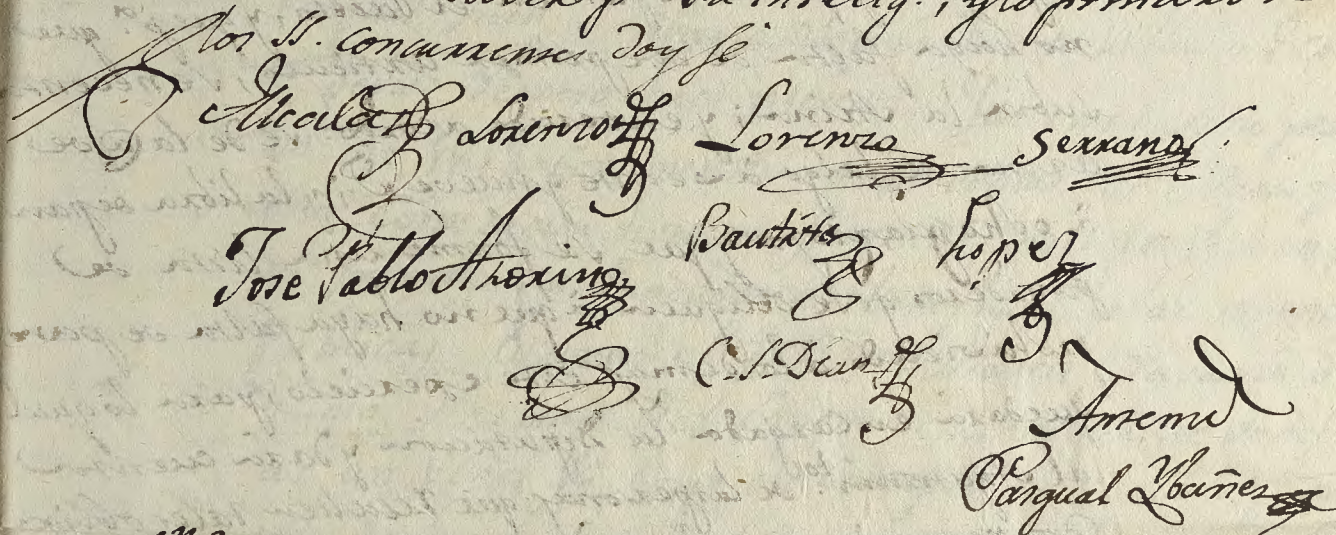 pr. su intelig.ª, y lo primero
los SS. concurrentes doy fé
Alcala Lorenzo Lorenzo Serrano
Jose Pablo Azorin Bautista Lopez
C. S. Dian
Antemi
Pasqual Ybañez